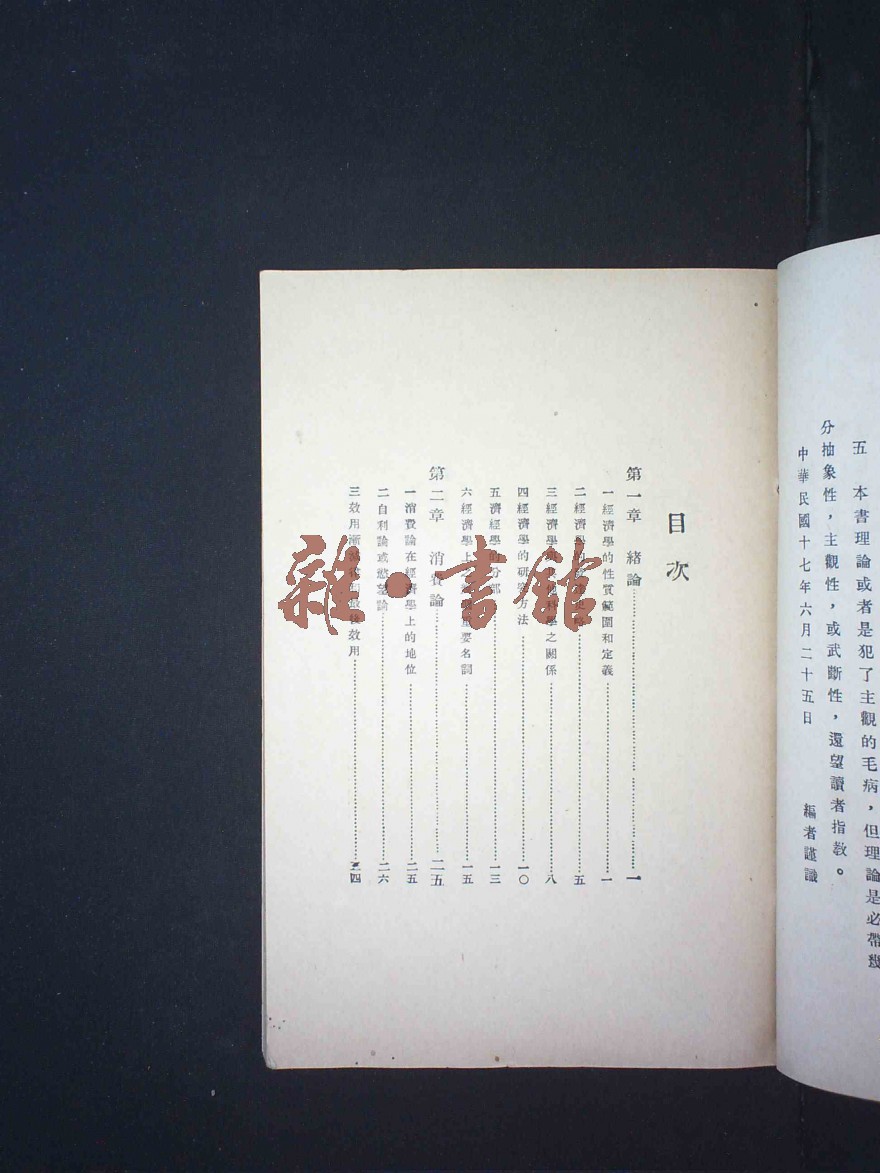 五 本書理論或者是犯了主觀的毛病，但理論是必帶幾
分抽象性，主觀性，或武斷性，還望讀者指教。
中華民國十七年六月二十五日 編者謹識
目次
第一章 緒論…………一
一 經濟學的性質範圍和定義…………一
二 經濟學…………五
三 經濟學與其他科學之關係…………八
四 經濟學的研究方法…………一〇
五 濟經學的分部…………一三
六 經濟學上…重要名詞…………一五
第二章 消費論…………二五
一 消費論在經濟學上的地位…………二五
二 自利論或慾望論…………二六
三 效用漸減…最後效用…………三四
雜·書館